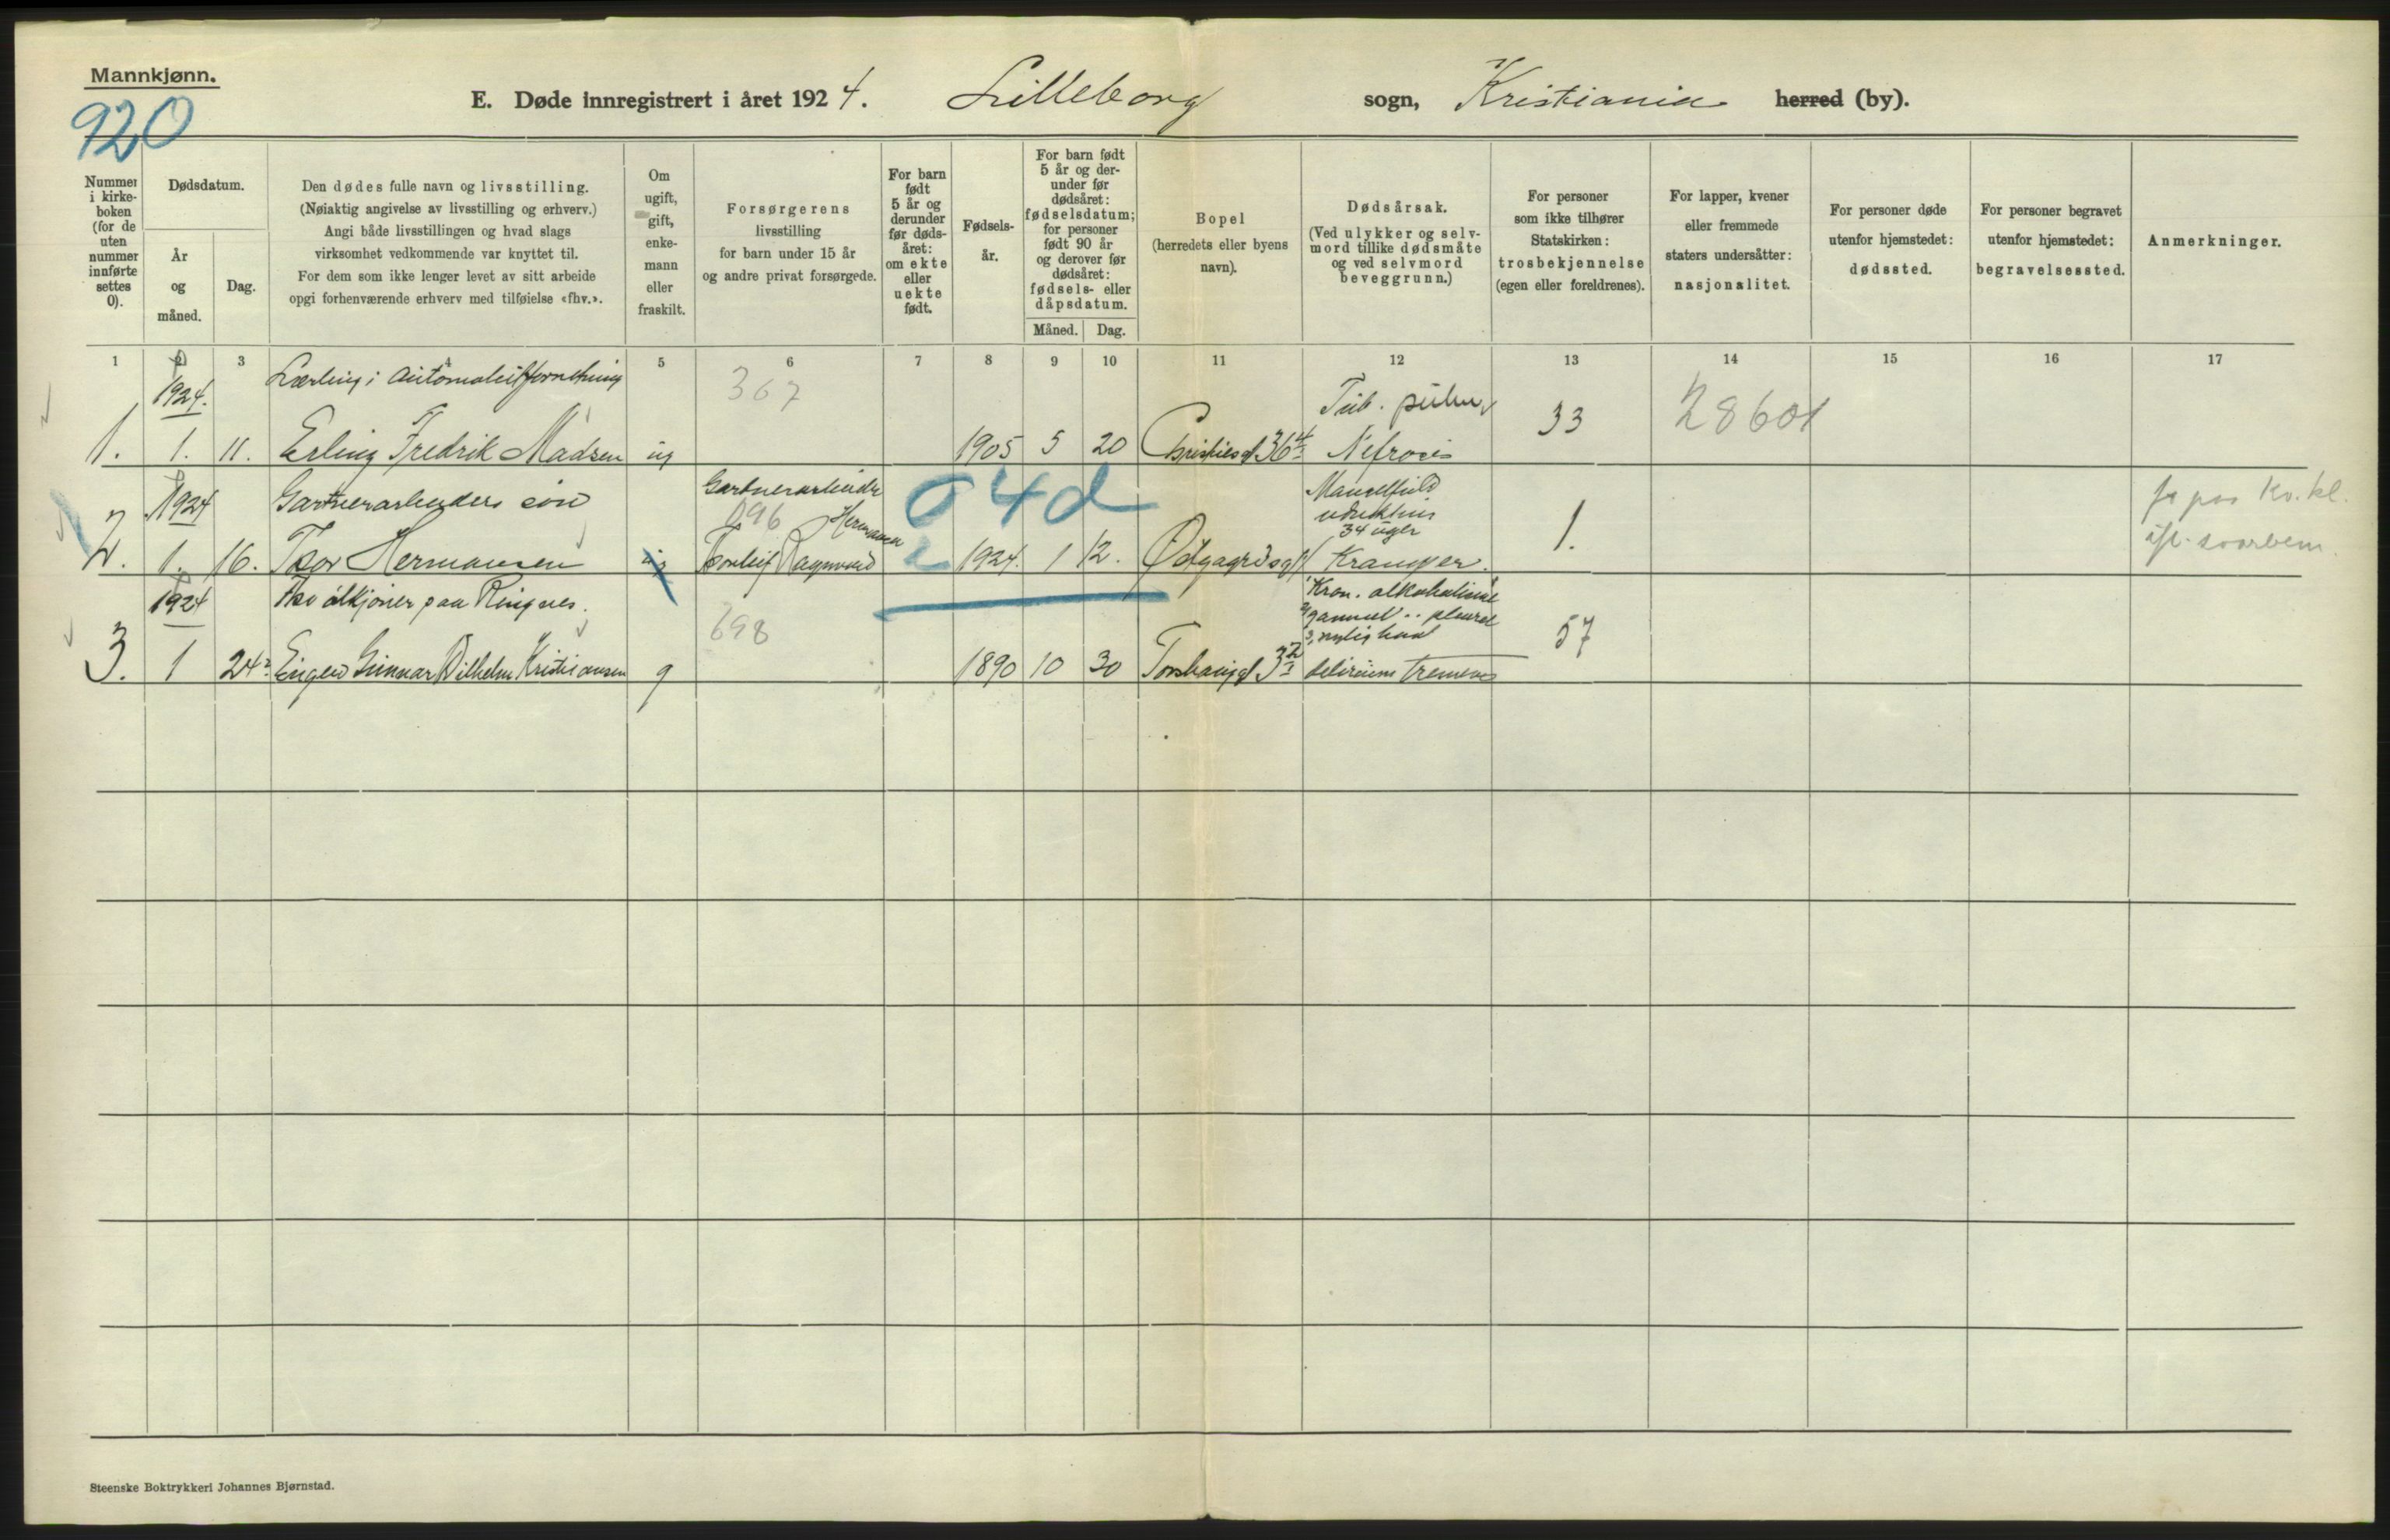 Mannkjønn.
920
E. Døde innregistrert i året 1924. Lilleborg sogn, Kristiania herred (by).
Nummer i kirkeboken (for de uten nummer innførte settes 0).
Dødsdatum.
År og måned.
Dag.
Den dødes fulle navn og livsstilling.
(Nøiaktig angivelse av livsstilling og erhverv.)
Angi både livsstillingen og hvad slags
virksomhet vedkommende var knyttet til.
For dem som ikke lenger levet av sitt arbeide
opgi forhenværende erhverv med tilføielse «fhv.».
Om
ugift,
gift,
enke-
mann
eller
fraskilt.
Forsørgerens
livsstilling
for barn under 15 år
og andre privat forsørgede.
For barn
født
5 år og
derunder
før døds-
året:
om ekte
eller
uekte
født.
Fødsels-
år.
For barn født
5 år og der-
under før
dødsåret:
fødselsdatum;
for personer
født 90 år
og derover før
dødsåret:
fødsels- eller
dåpsdatum.
Måned. Dag.
Bopel
(herredets eller byens
navn).
Dødsårsak.
(Ved ulykker og selv-
mord tillike dødsmåte
og ved selvmord
beveggrunn.)
For personer
som ikke tilhører
Statskirken:
trosbekjennelse
(egen eller foreldrenes).
For lapper, kvener
eller fremmede
staters undersåtter:
nasjonalitet.
For personer døde
utenfor hjemstedet:
dødssted.
For personer begravet
utenfor hjemstedet:
begravelsessted.
Anmerkninger.
1 2 3 4 5 6 7 8 9 10 11 12 13 14 15 16 17
1924. Lærling i Automobilforretning 367 Tub. pulm
1. 1. 11. Erling Fredrik Madsen ug 1905 5 20 Christiesgt 36 4 Nefrosis 33 28601
1924 Gartnerarbeiders søn Gartnerarbeider 04d Mangelfuld
096 Hermansen 34 uger
2. 1. 16. Thor Hermansen ug Thorleif Ragnvald 1924. 1 12. Kramper. 1.
1924 ølkjører paa Ringnes. Kron. alkoholisme
698 gammel pleurit
3. 1 24 Gunnar Vilhelm Kristiansen g 1890 10 30 Torshauggt 3 delirium tremens 57
Steenske Boktrykkeri Johannes Bjørnstad.